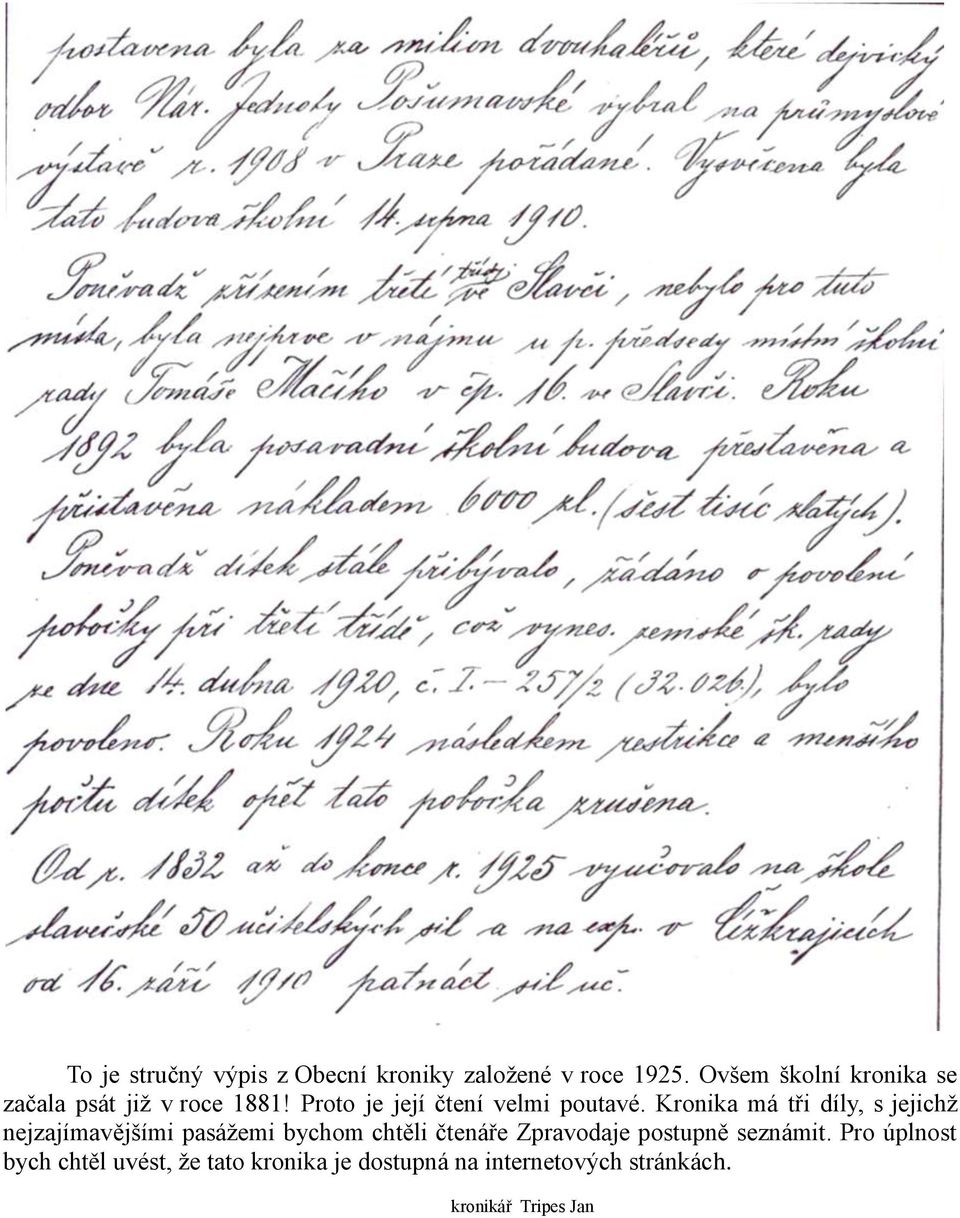 postavena byla za milion dvouhaléřů, které dejvický
odbor Nár. Jednoty Pošumavské vybral na průmyslové
výstavě r. 1908 v Praze pořádané. Vysvěcena byla
tato budova školní 14. srpna 1910.
Poněvadž zřízením třetí třídy ve Slavči, nebylo pro tuto
místa, byla nejprve v nájmu u p. předsedy místní školní
rady Tomáše Mačího v čp. 16. ve Slavči. Roku
1892 byla posavadní školní budova přestavěna a
přistavěna nákladem 6000 zl. (šest tisíc zlatých).
Poněvadž dítek stále přibývalo, žádáno o povolení
pobočky při třetí třídě, což vynes. zemské šk. rady
ze dne 14. dubna 1920, č. I. – 257/2 (32.026.), bylo
povoleno. Roku 1924 následkem restrikce a menšího
počtu dítek opět tato pobočka zrušena.
Od r. 1832 až do konce r. 1925 vyučovalo na škole
slavečské 50 učitelských sil a na exp. v Čížkrajicích
od 16. září 1910 patnáct sil uč.
To je stručný výpis z Obecní kroniky založené v roce 1925. Ovšem školní kronika se
začala psát již v roce 1881! Proto je její čtení velmi poutavé. Kronika má tři díly, s jejichž
nejzajímavějšími pasážemi bychom chtěli čtenáře Zpravodaje postupně seznámit. Pro úplnost
bych chtěl uvést, že tato kronika je dostupná na internetových stránkách.
kronikář Tripes Jan